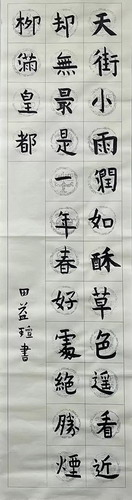 天街小雨潤如酥草色遥看近
却無最是一年春好處絶勝煙
柳滿皇都
田益瑄書